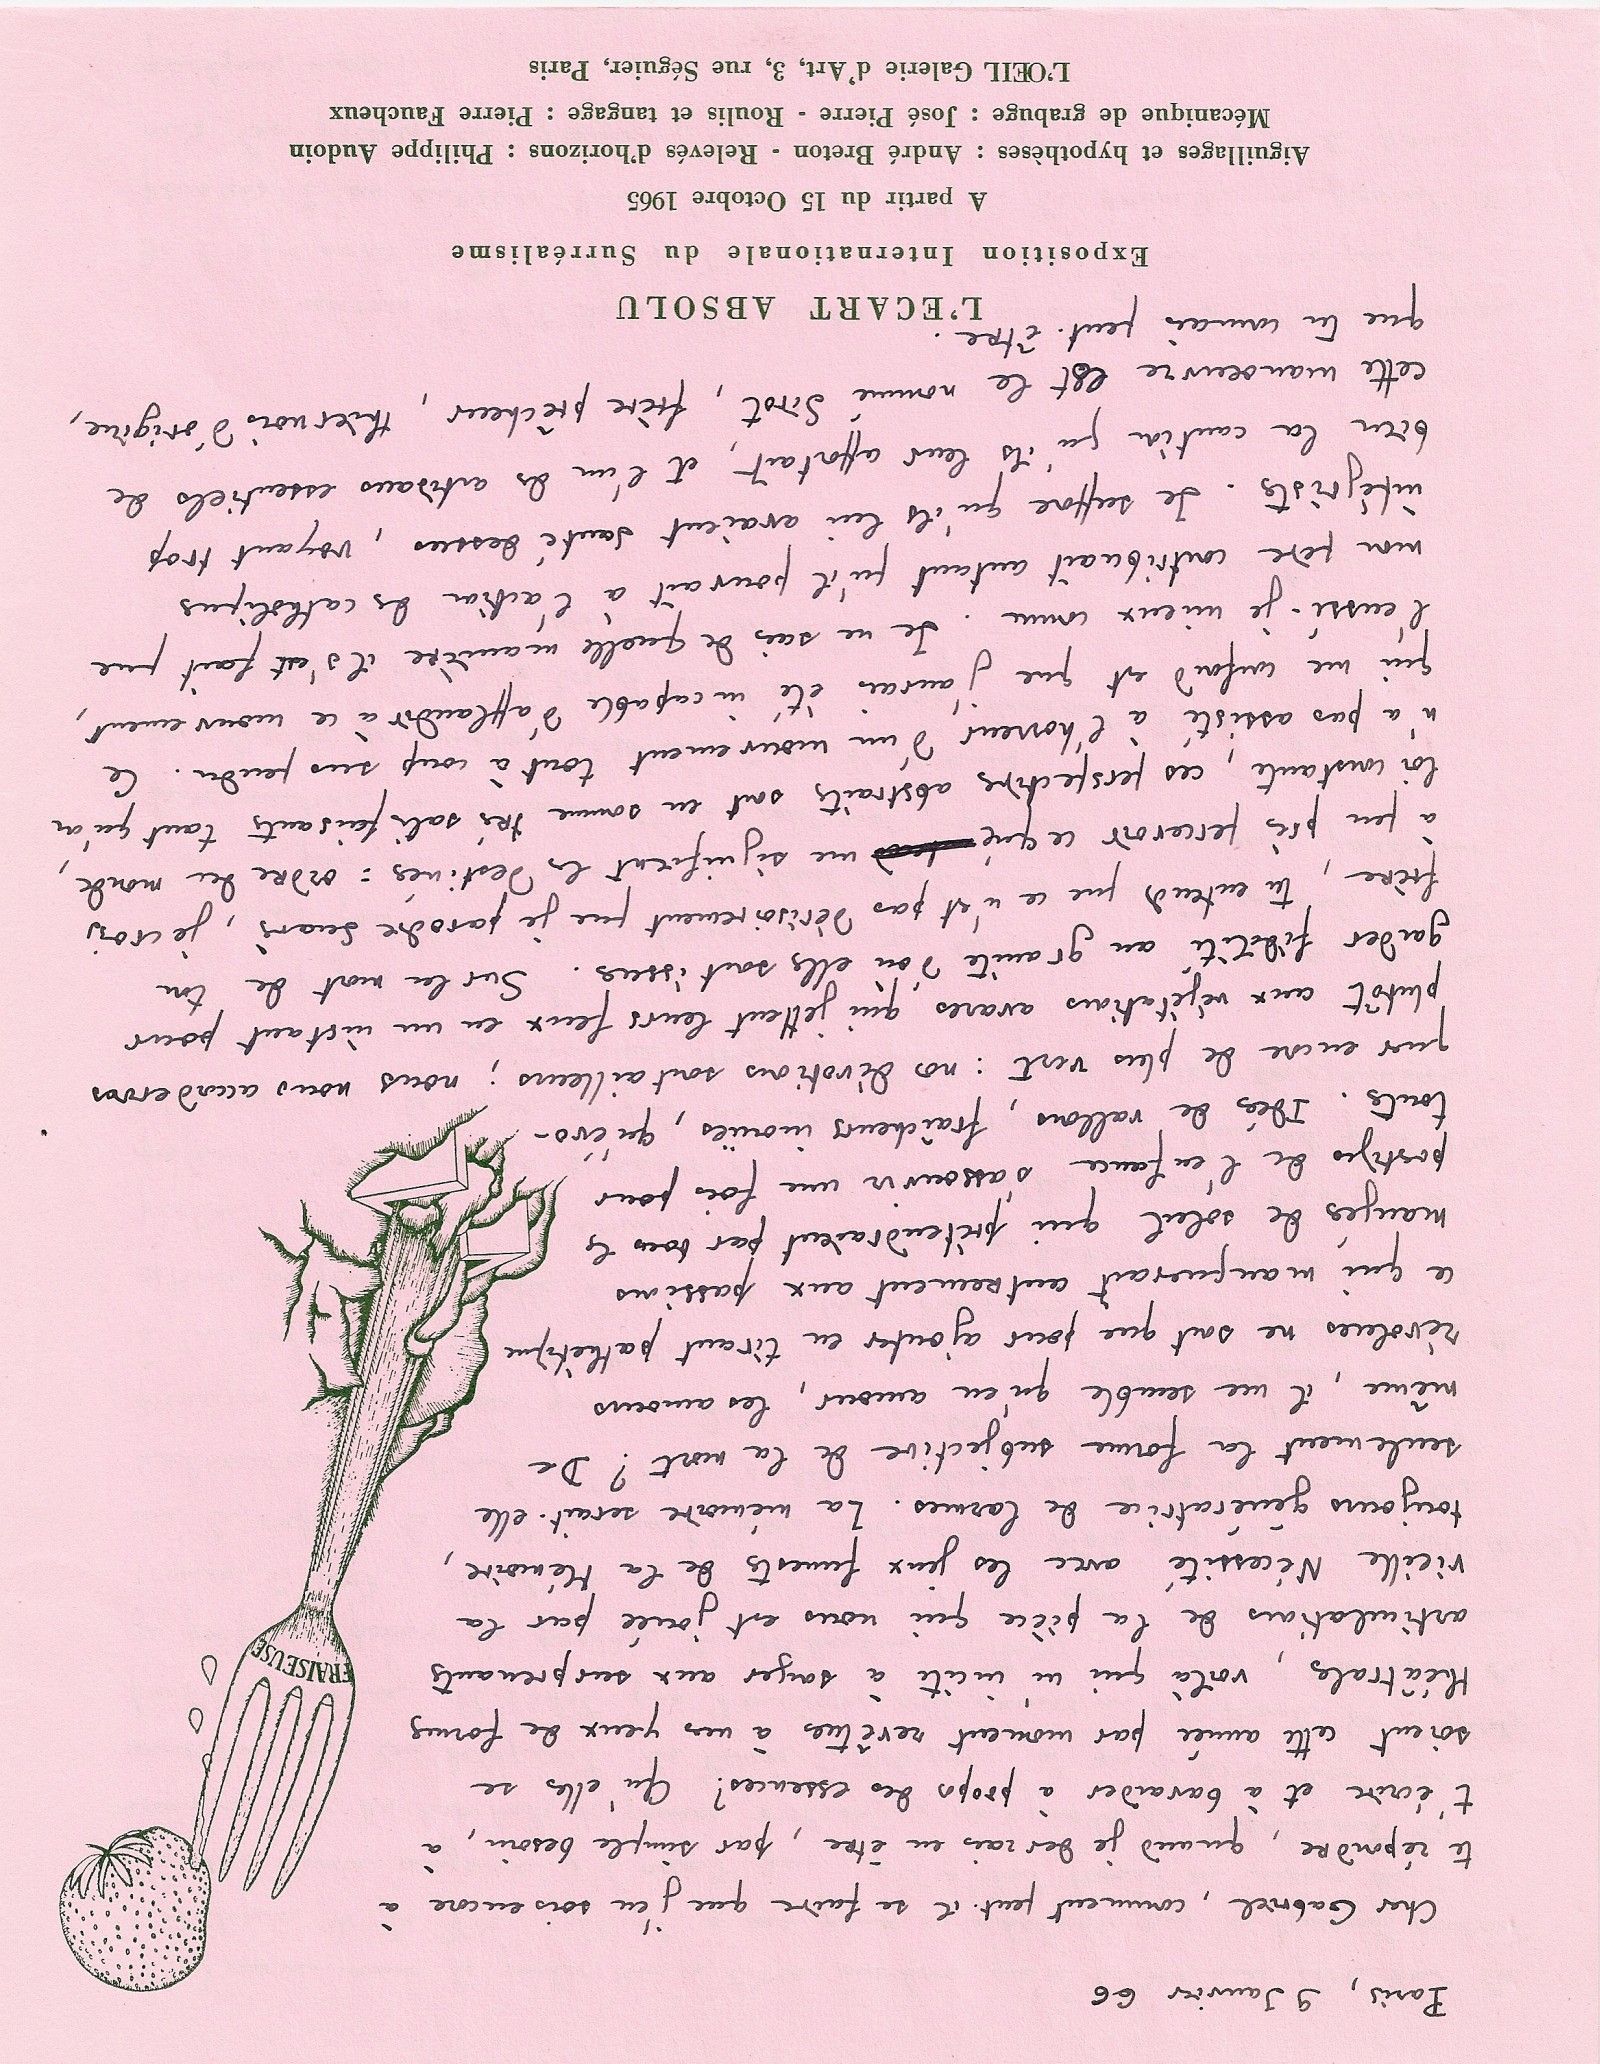 Paris, 9 Janvier 66
Cher Gabriel, comment peut-il se faire que j'en sois encore à
te répondre, quand je devrais en être, par simple besoin, à
t'écrire et à bavarder à propos des essences? Qu'elles se
soient cette année par moment revêtues à mes yeux de formes
théâtrales, voilà qui m'incite à songer aux surprenants
articulations de la pièce qui nous est jouée par la
vieille Nécessité avec les jeux funestes de la Mémoire,
toujours génératrice de larmes. La mémoire serait-elle
seulement la forme subjective de la mort? De
même, il me semble qu'en amour, les amours
révolues ne sont que pour ajouter en tirant pathétique
ce qui manquerait autrement aux passions
mangées de soleil qui prétendraient par tous les
postiges de l'enfance s'assouvir une fois pour
toutes. Idées de vallons, fraîcheurs inouïes, qu'évo-
quer encore de plus vert : nos dévotions sont ailleurs ; nous nous accorderons
plutôt aux végétations avares qui jettent leurs feux en un instant pour
garder fidélité au granite d'où elles sont issues. Sur la mort de ton
frère, tu entends que ce n'est pas dérisoirement que je parodie Suarès, je crois
à peu près percevoir ce que me signifient les destinées : ordre du monde,
loi constante, ces perspectives abstraites sont en somme très satisfaisantes tant qu'on
n'a pas assisté à l'horreur d'un mouvement tout à coup suspendu. Ce
qui me confond est que j'aurais été incapable d'applaudir à ce mouvement,
l'eussé-je mieux connu. Je ne sais de quelle manière il s'est fait que
mon père contribuait autant qu'il pouvait à l'action des catholiques
intégristes. Je suppose qu'ils lui avaient sauté dessus, voyant trop
bien la caution qu'ils leur apportait, et l'un des artisans essentiels de
cette manoeuvre est le nommé Sirot, frère prêcheur, thiernois d'origine,
que tu connais peut-être.
FRAISEUSE
L'ECART ABSOLU
Exposition Internationale du Surréalisme
A partir du 15 Octobre 1965
Aiguillages et hypothèses : André Breton - Relevés d'horizons : Philippe Audoin
Mécanique de grabuge : José Pierre - Roulis et tangage : Pierre Faucheux
L'ŒIL Galerie d'Art, 3, rue Séguier, Paris